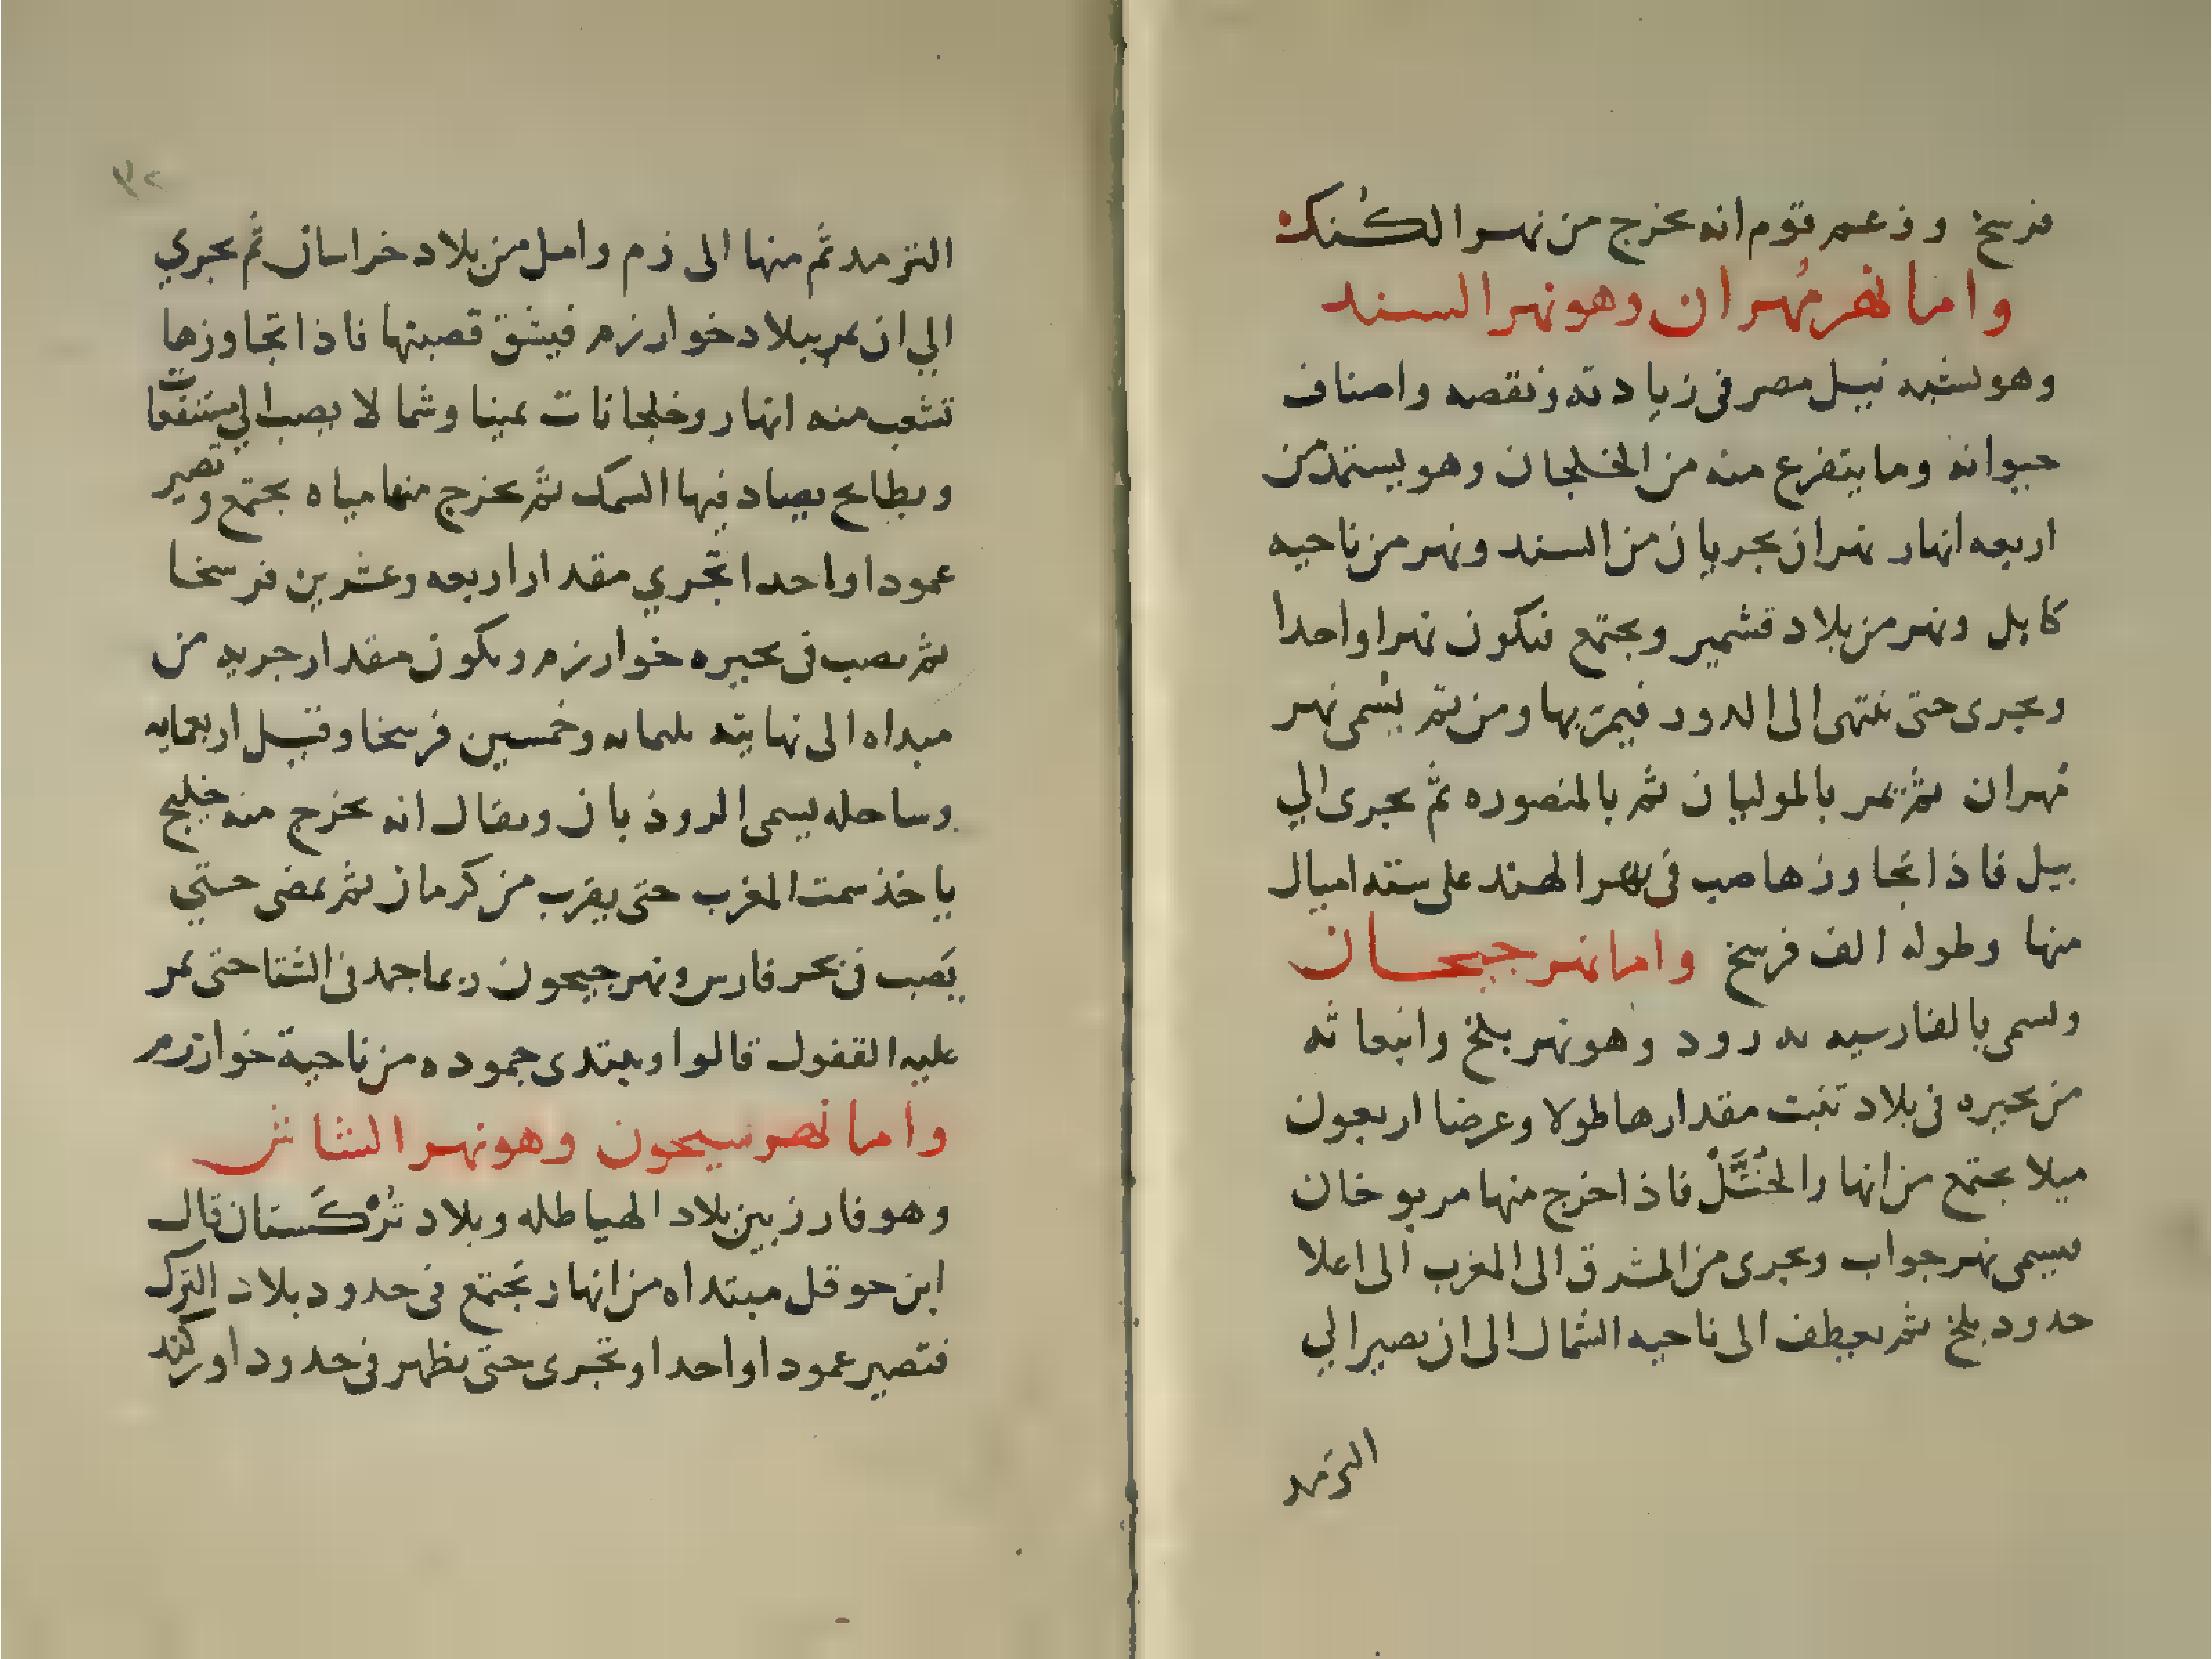 فرسخ وزعم قوم انه يخرج من نهر الكُنك
واما نهر مُهران وهو نهر السند
وهو يشبه نيل مصر في زيادته ونقصه واصناف
حيوانه وما يتفرع منه من الخلجان وهو يستمد من
اربعه انهار نهران يجريان من السند ونهر من ناحيه
كابل ونهر من بلاد قشمير ويجتمع فيكون نهرا واحدا
ويجرى حتى ينتهى الى الدور فيمرّ بها ومن ثم يسمى نهر
مُهران ثم يمر بالموليان ثم بالمنصوره ثم يجرى الي
بيل فاذا تجاوزها صب في بحر الهند على سته اميال
منها وطوله الف فرسخ واما نهر جيحان
ويسمى بالفارسيه به رود وهو نهر بلخ وانبعاثه
من بحيره في بلاد تبت مقدارها طولا وعرضا اربعون
ميلا يجتمع من انهار الختّل فاذا خرج منها مر بوخان
فيسمى نهر جواب ويجرى من المشرق الى المغرب الى اعلا
حدود بلخ ثم يعطف الى ناحيه الشمال الى ان يصير الي
الترمد
٩٢
الترمد ثم منها الى زم وامل من بلاد خراسان ثم يجري
الي ان يمر ببلاد خوارزم فيشق قصبتها فاذا تجاوزها
تشعب منه انهار وخلجانات يمينا وشمالا يصب الي مستنقعات
وبطايح يصاد فيها السمك ثم يخرج منها مياه يجتمع وتصير
عمودا واحدا تجري مقدار اربعه وعشرين فرسخا
ثم يصب في بحيره خوارزم ويكون مقدار جريه من
مبداه الى نهايته ثلثمايه وخمسين فرسخا وقيل اربعمايه
وساحله يسمى الروذبان ويقال انه يخرج منه خليج
ياخذ سمت المغرب حتى يقرب من كرمان ثم يمضى حتي
يصب في بحر فارس ونهر جيحون ربما جمد في الشتا حتى يمر
عليه القفول قالوا ويبتدى جموده من ناحية خوارزم
واما نهر سيحون وهو نهر الشاش
وهو فارز بين بلاد الهياطله وبلاد تُركستان قال
ابن حوقل مبتداه من انهار تجتمع في حدود بلاد الترك
فتصير عمودا واحدا وتجرى حتى يظهر في حدود اوركند